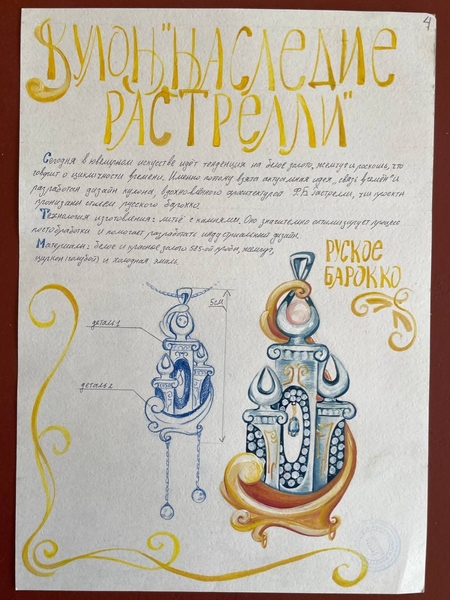 4
Кулон "Наследие
Растрелли"
Сегодня в ювелирном искусстве идёт тенденция на белое золото, жемчуг и роскошь, что
говорит о цикличности времени. Именно потому взята актуальная идея „связь времён" и
разработся дизайн кулона, вдохновлённого архитектурой Ф.Б. Растрелли, чьи проекты
пронизаны стилем русского барокко.
Технология изготовления: литьё с камнями. Оно значительно оптимизирует процесс
постобработки и помогает разработать индустриальный дизайн.
Материалы: белое и красное золото 585-ой пробы, жемчуг,
циркон (голубой) и холодная эмаль.
РУСКОЕ
БАРОККО
5см
деталь 1
деталь 2